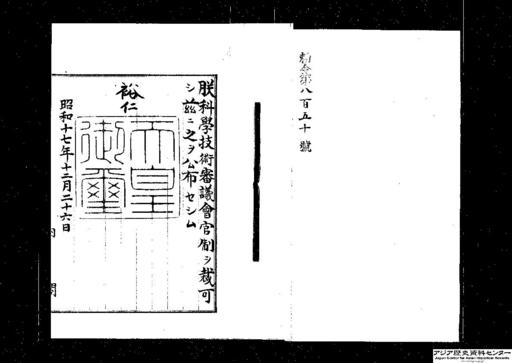 勅令第八百五十號
朕科學技術審議會官制ヲ裁可
シ茲ニ之ヲ公布セシム
裕仁
天皇御璽
昭和十七年十二月二十六日
内閣
アジア歴史資料センター
Japan Center for Asian Historical Records